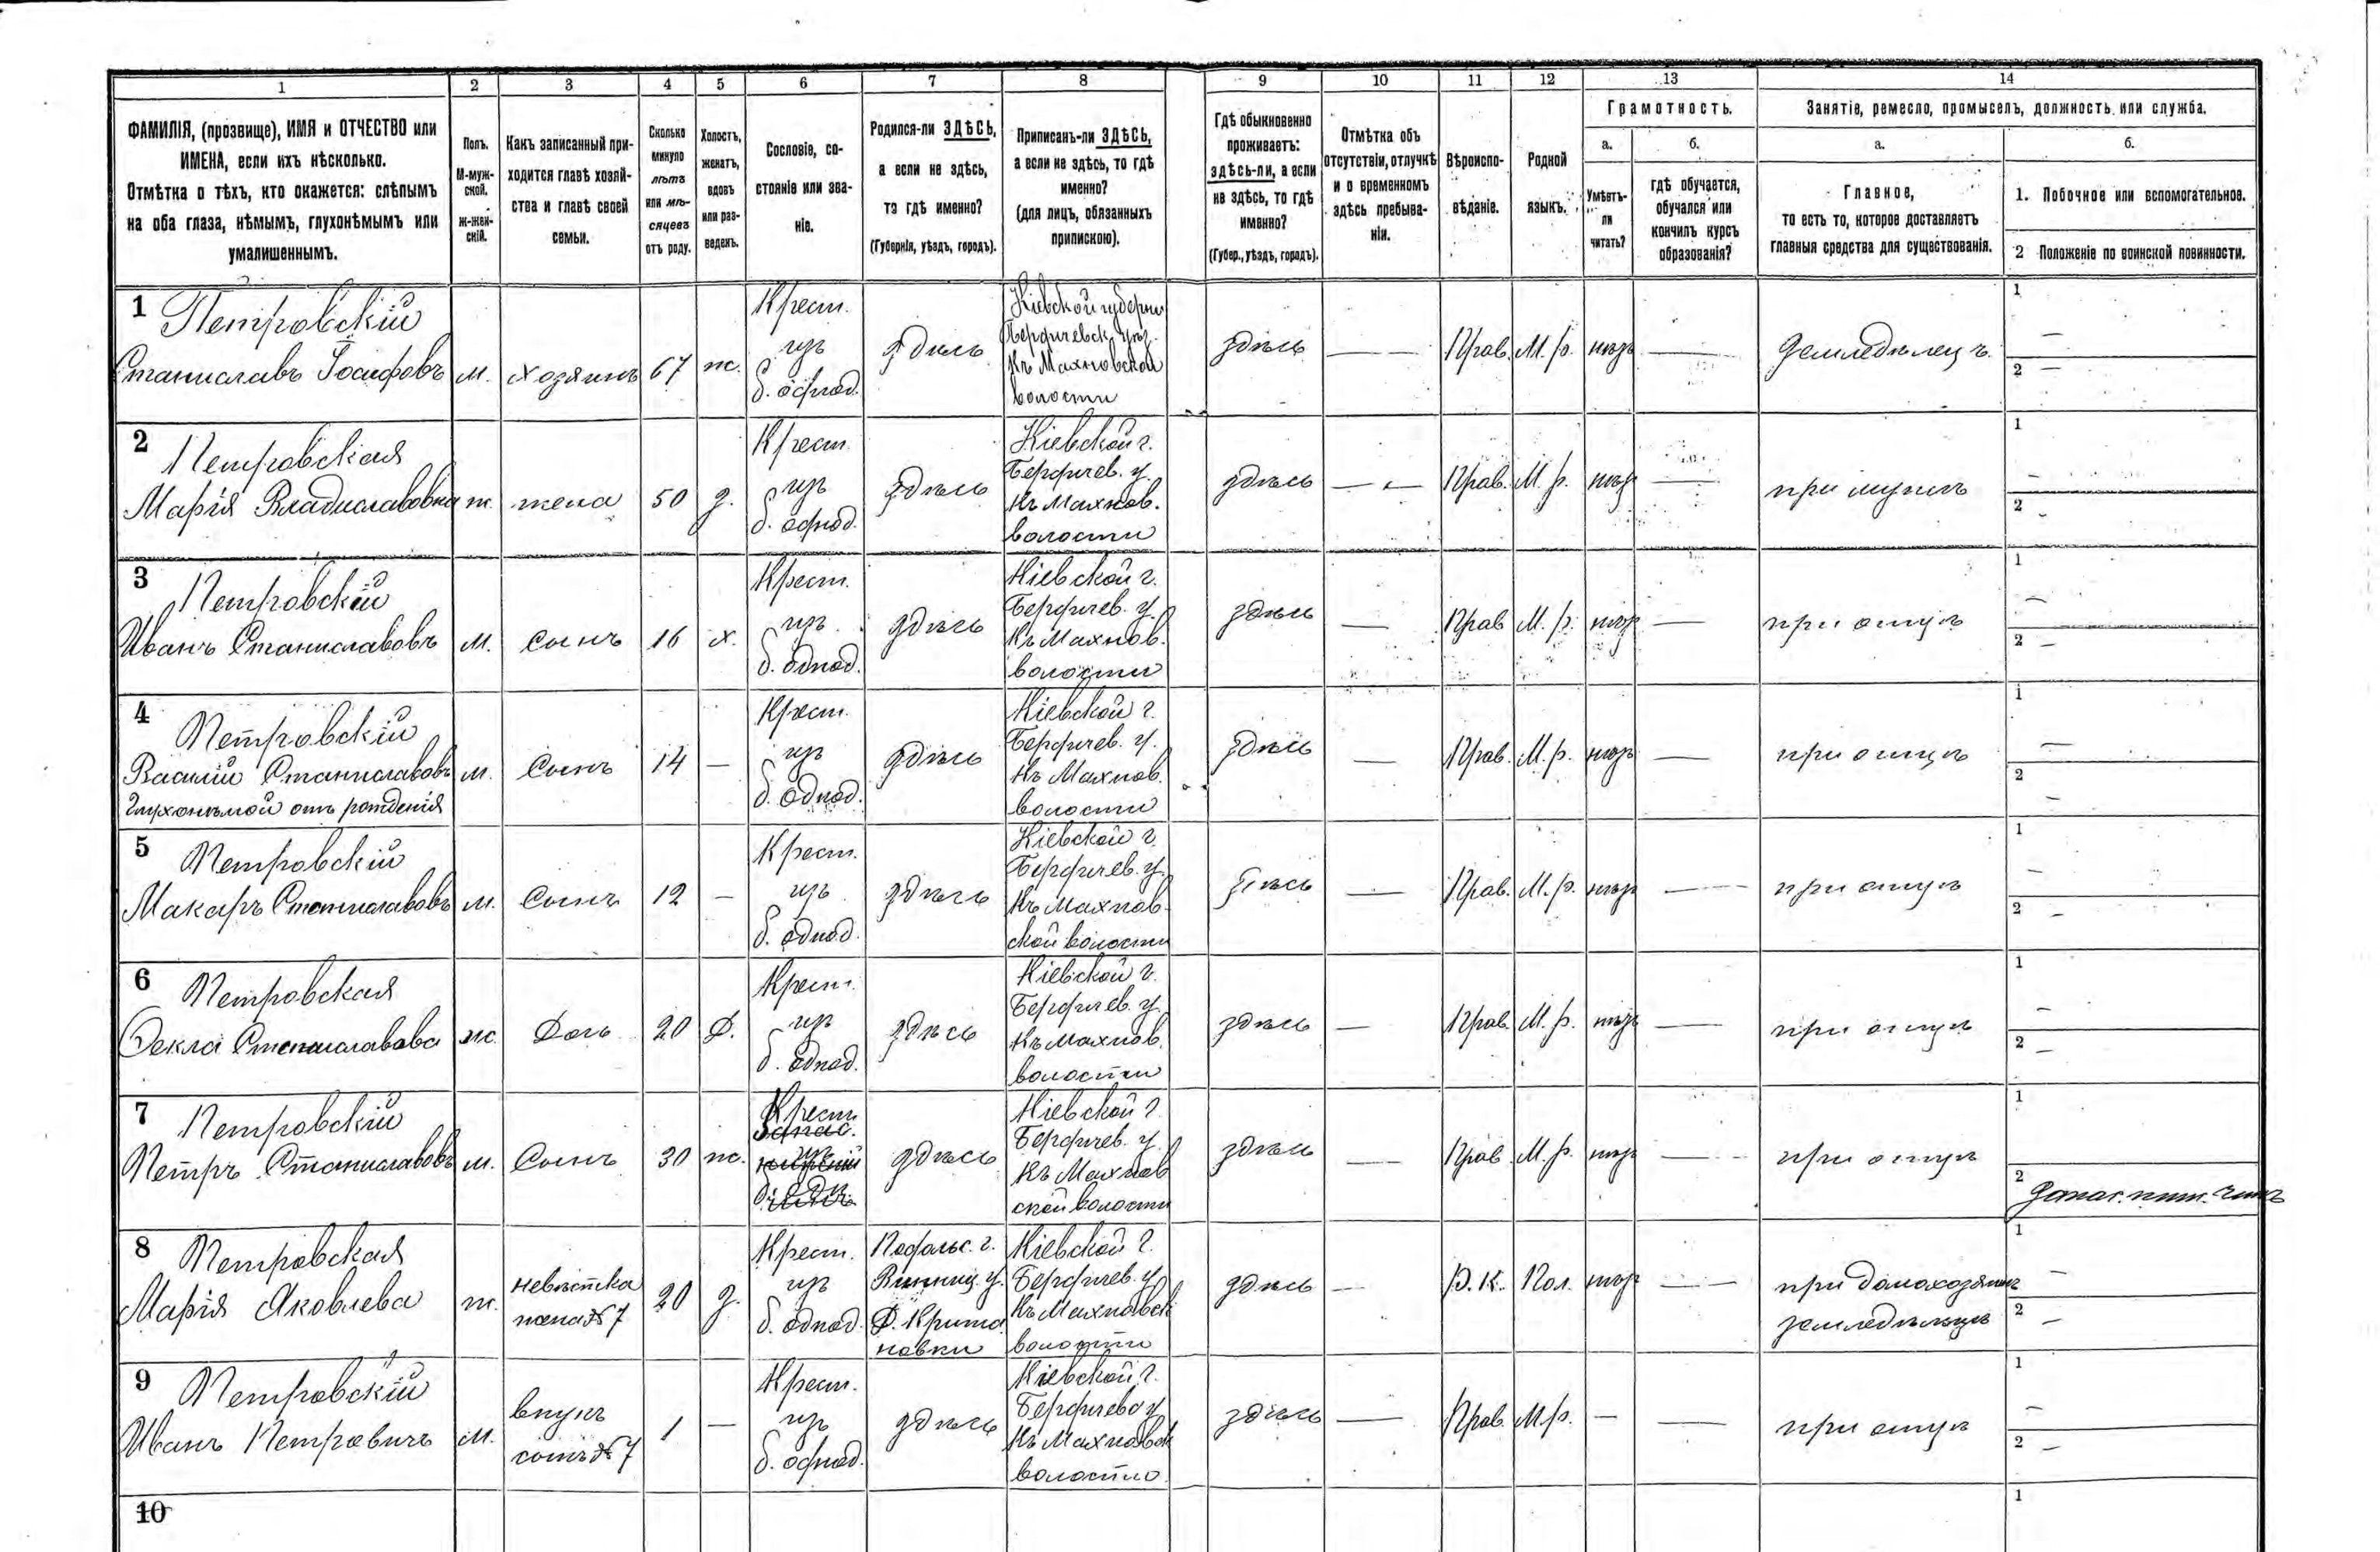 1 2 3 4 5 6 7 8 9 10 11 12 13 14
ФАМИЛІЯ, (прозвище), ИМЯ и ОТЧЕСТВО или
ИМЕНА, если ихъ нѣсколько.
Отмѣтка о тѣхъ, кто окажется: слѣпымъ
на оба глаза, нѣмымъ, глухонѣмымъ или
умалишеннымъ.
Полъ.
М-муж-
ской.
Ж-жен-
скій.
Какъ записанный при-
ходится главѣ хозяй-
ства и главѣ своей
семьи.
Сколько
минуло
лѣтъ
или мѣ-
сяцевъ
отъ роду.
Холостъ,
женатъ,
вдовъ
или раз-
веденъ.
Сословіе, со-
стояніе или зва-
ніе.
Родился-ли ЗДѢСЬ,
а если не здѣсь,
то гдѣ именно?
(Губернія, уѣздъ, городъ).
Приписанъ-ли ЗДѢСЬ,
а если не здѣсь, то гдѣ
именно?
(для лицъ, обязанныхъ
припискою).
Гдѣ обыкновенно
проживаетъ:
здѣсь-ли, а если
не здѣсь, то гдѣ
именно?
(Губер., уѣздъ, городъ).
Отмѣтка объ
отсутствіи, отлучкѣ
и о временномъ
здѣсь пребыва-
ніи.
Вѣроиспо-
вѣданіе.
Родной
языкъ.
Грамотность.
а.
Умѣетъ-
ли
читать?
б.
гдѣ обучается,
обучался или
кончилъ курсъ
образованія?
Занятіе, ремесло, промыселъ, должность или служба.
а.
Главное,
то есть то, которое доставляетъ
главныя средства для существованія.
б.
1. Побочное или вспомогательное.
2 Положеніе по воинской повинности.
1 Петровскій
Станиславъ Іосифовъ
м.
хозяинъ
67
ж.
Крест.
изъ
б. однод.
здѣсь
Кіевской губерни
Бердичевск. уѣз.
Къ Махновской
волости
здѣсь
—
Прав.
М. р.
нѣтъ
—
Земледѣлецъ.
1 —
2 —
2 Петровская
Марія Владиславовна
ж.
жена
50
з.
Крест.
изъ
б. однод.
здѣсь
Кіевской г.
Бердичев. у.
Къ Махнов.
волости
здѣсь
—
Прав.
М. р.
нѣтъ
—
при мужѣ
1 —
2 -
3 Петровскій
Иванъ Станиславовъ
м.
сынъ
16
х.
Крест.
изъ
б. однод.
здѣсь
Кіевской г.
Бердичев. у.
Къ Махнов.
волости
здѣсь
—
Прав
М. р.
нѣтъ
—
при отцѣ
1 —
2 —
4 Петровскій
Василій Станиславовъ
Глухонѣмой отъ рожденія
м.
Сынъ
14
—
Крест.
изъ
б. однод.
здѣсь
Кіевской г.
Бердичев. у.
Къ Махнов.
волости
здѣсь
—
Прав.
М. р.
нѣтъ
—
при отцѣ
1 —
2 —
5 Петровскій
Макаръ Станиславовъ
м.
Сынъ
12
—
Крест.
изъ
б. однод.
здѣсь
Кіевской г.
Бердичев. у.
Къ Махнов-
ской волости
здѣсь
—
Прав.
М. р.
нѣтъ
—
при отцѣ
1 —
2 —
6 Петровская
Ѳекла Станиславова
ж.
Дочь
20
Д.
Крест.
изъ
б. однод.
здѣсь
Кіевской г.
Бердичев. у.
Къ Махнов.
волости
здѣсь
—
Прав.
М. р.
нѣтъ
—
при отцѣ
1 —
2 —
7 Петровскій
Петръ Станиславовъ
м.
Сынъ
30
ж.
Крест
Запас.
изъ
здѣсь
Кіевской г.
Бердичев. у.
Къ Махнов
ской волости
здѣсь
—
Прав.
М. р.
нѣтъ
—
при отцѣ
1
2 Запас. ниж. чинъ
8 Петровская
Марія Яковлева
ж.
невѣстка
жена № 7
20
з.
Крест.
изъ
б. однод.
Подольс. г.
Винниц. у.
Д. Кришта
новки
Кіевской г.
Бердичев. у.
Къ Махновск
волости
здѣсь
—
Р. К.
Пол.
нѣтъ
—
при домохозяинѣ
земледѣльцѣ
1 —
2 —
9 Петровскій
Иванъ Петровичъ
м.
внукъ
сынъ № 7
1
—
Крест.
изъ
б. однод.
здѣсь
Кіевской г.
Бердичевс у
Къ Махновск
волостію
здѣсь
—
Прав.
М. р.
—
—
при отцѣ
1 —
2 —
10
1